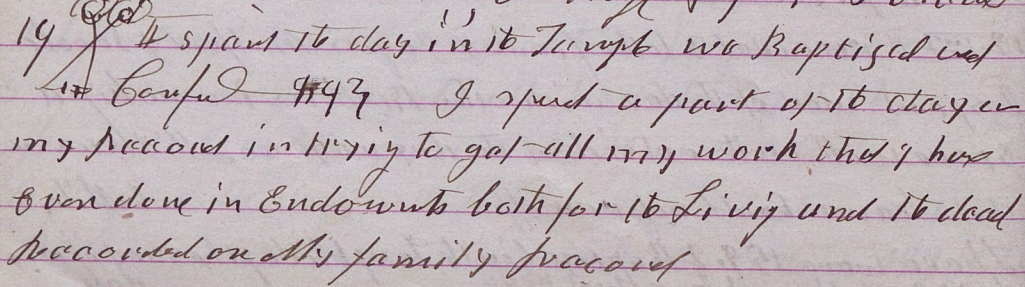 19 I spent the day in the Temple we Baptized and
Confird 493 I spent a part of the day on
my Record in trying to get all my work that I have
Ever done in Endowmts both for the Livig and the dead
Recorded on My family Record